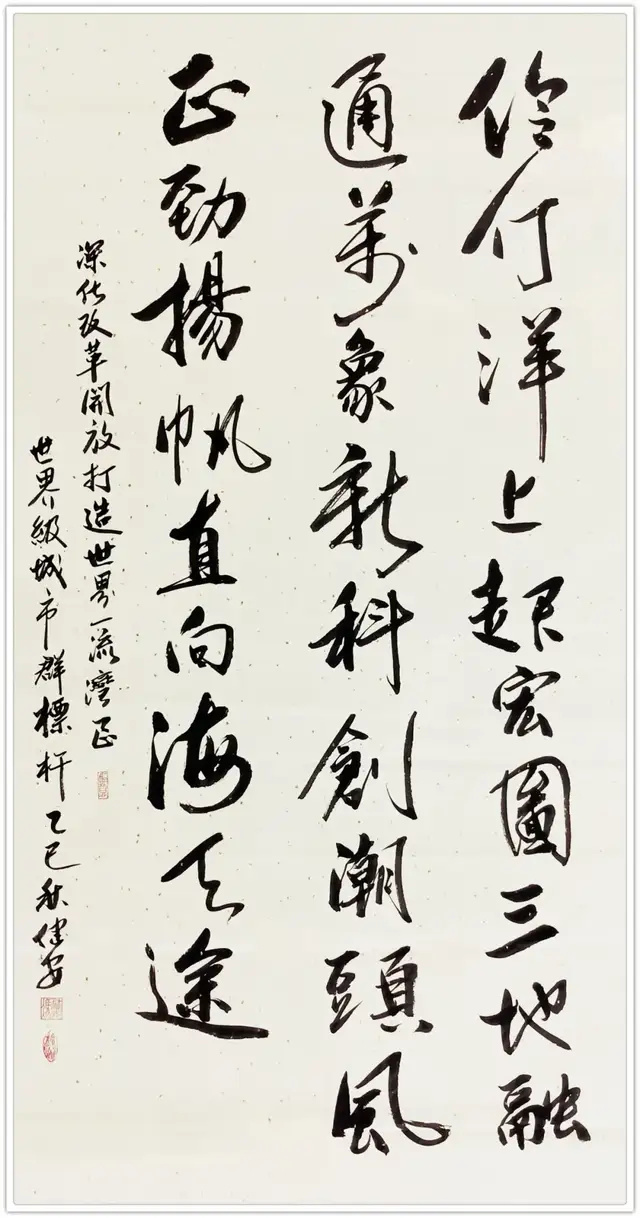 伶仃洋上起宏圖三地融
通萬象新科創潮頭風
正勁揚帆直向海天途
深化改革開放打造世界一流灣區
世界級城市群標杆乙巳秋健安